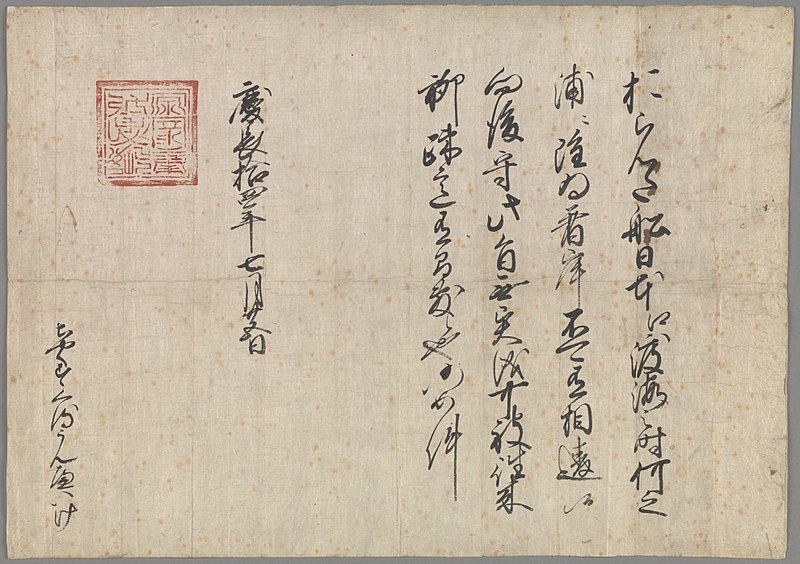 おらんだ船日本江渡海之時何之
浦ニ雖為着岸不可有相違候
向後守此旨無異儀可被往来
聊疎意有間敷候也仍如件
慶長拾四年七月廿五日
源家康忠恕
ちやくすくるうんへいけ